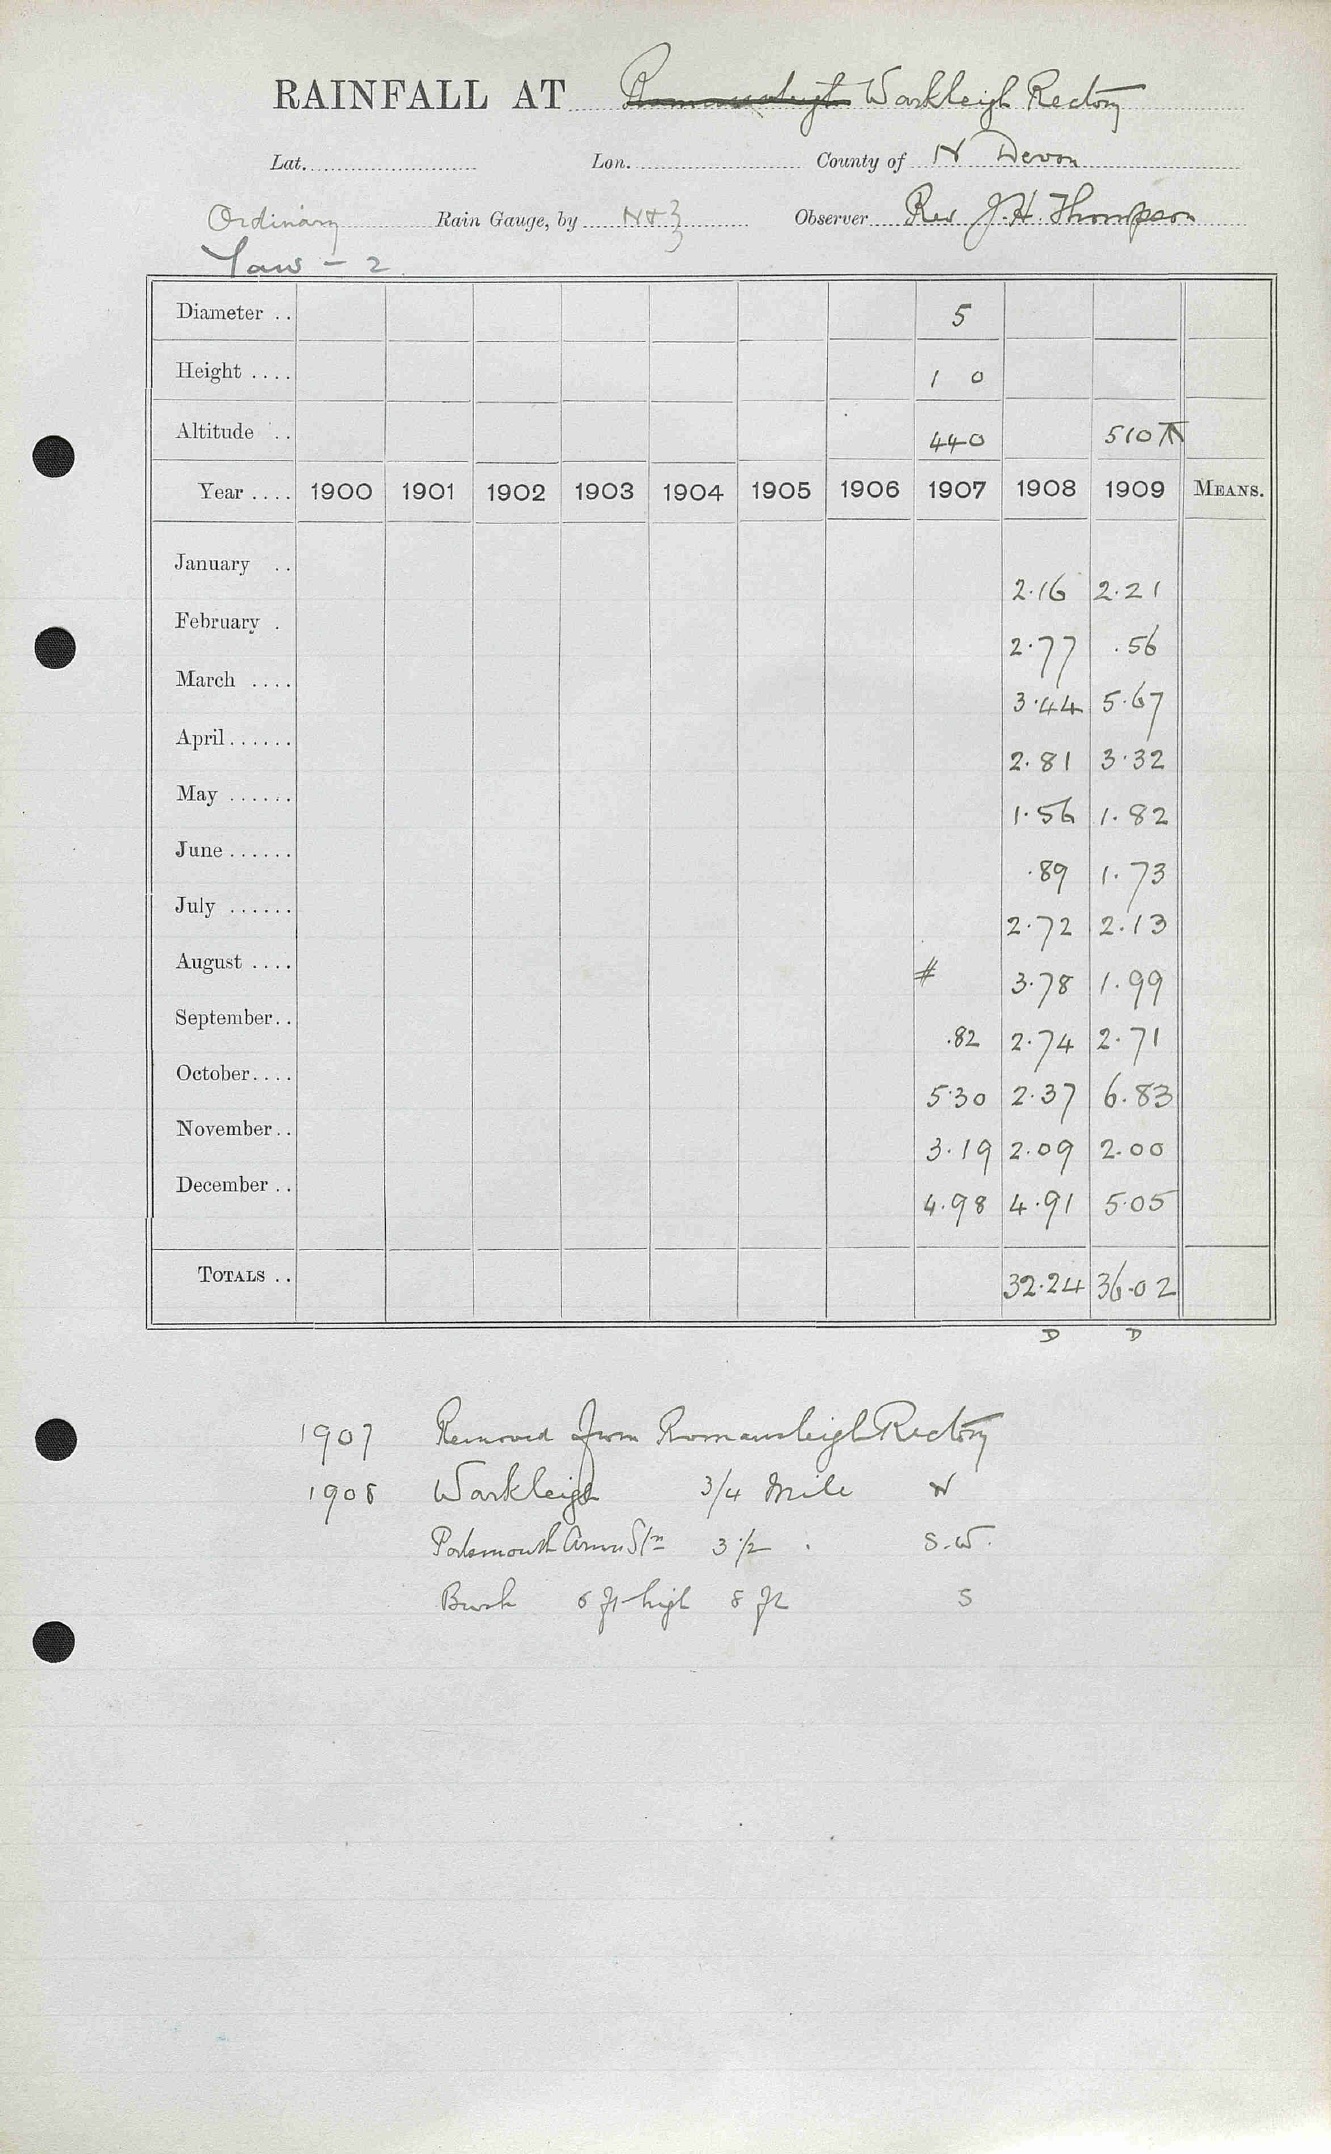 RAINFALL AT Romansleigh Warkleigh Rectory
Lat. Lon. County of N Devon
Ordinary Rain Gauge, by N & Z Observer Rev J. H. Thompson
Taw - 2
Diameter .. 5
Height .... 1 0
Altitude .. 440 510
Year .... 1900 1901 1902 1903 1904 1905 1906 1907 1908 1909 MEANS.
January .. 2.16 2.21
February . 2.77 .56
March .... 3.44 5.67
April...... 2.81 3.32
May ...... 1.56 1.82
June...... .89 1.73
July ...... 2.72 2.13
August .... # 3.78 1.99
September.. .82 2.74 2.71
October.... 5.30 2.37 6.83
November.. 3.19 2.09 2.00
December .. 4.98 4.91 5.05
TOTALS .. 32.24 36.02
D D
1907 Removed from Romansleigh Rectory
1908 Warkleigh 3/4 Mile N
Portsmouth Arms Stn 3 1/2 . S.W.
Bush 6 ft high 8 ft S